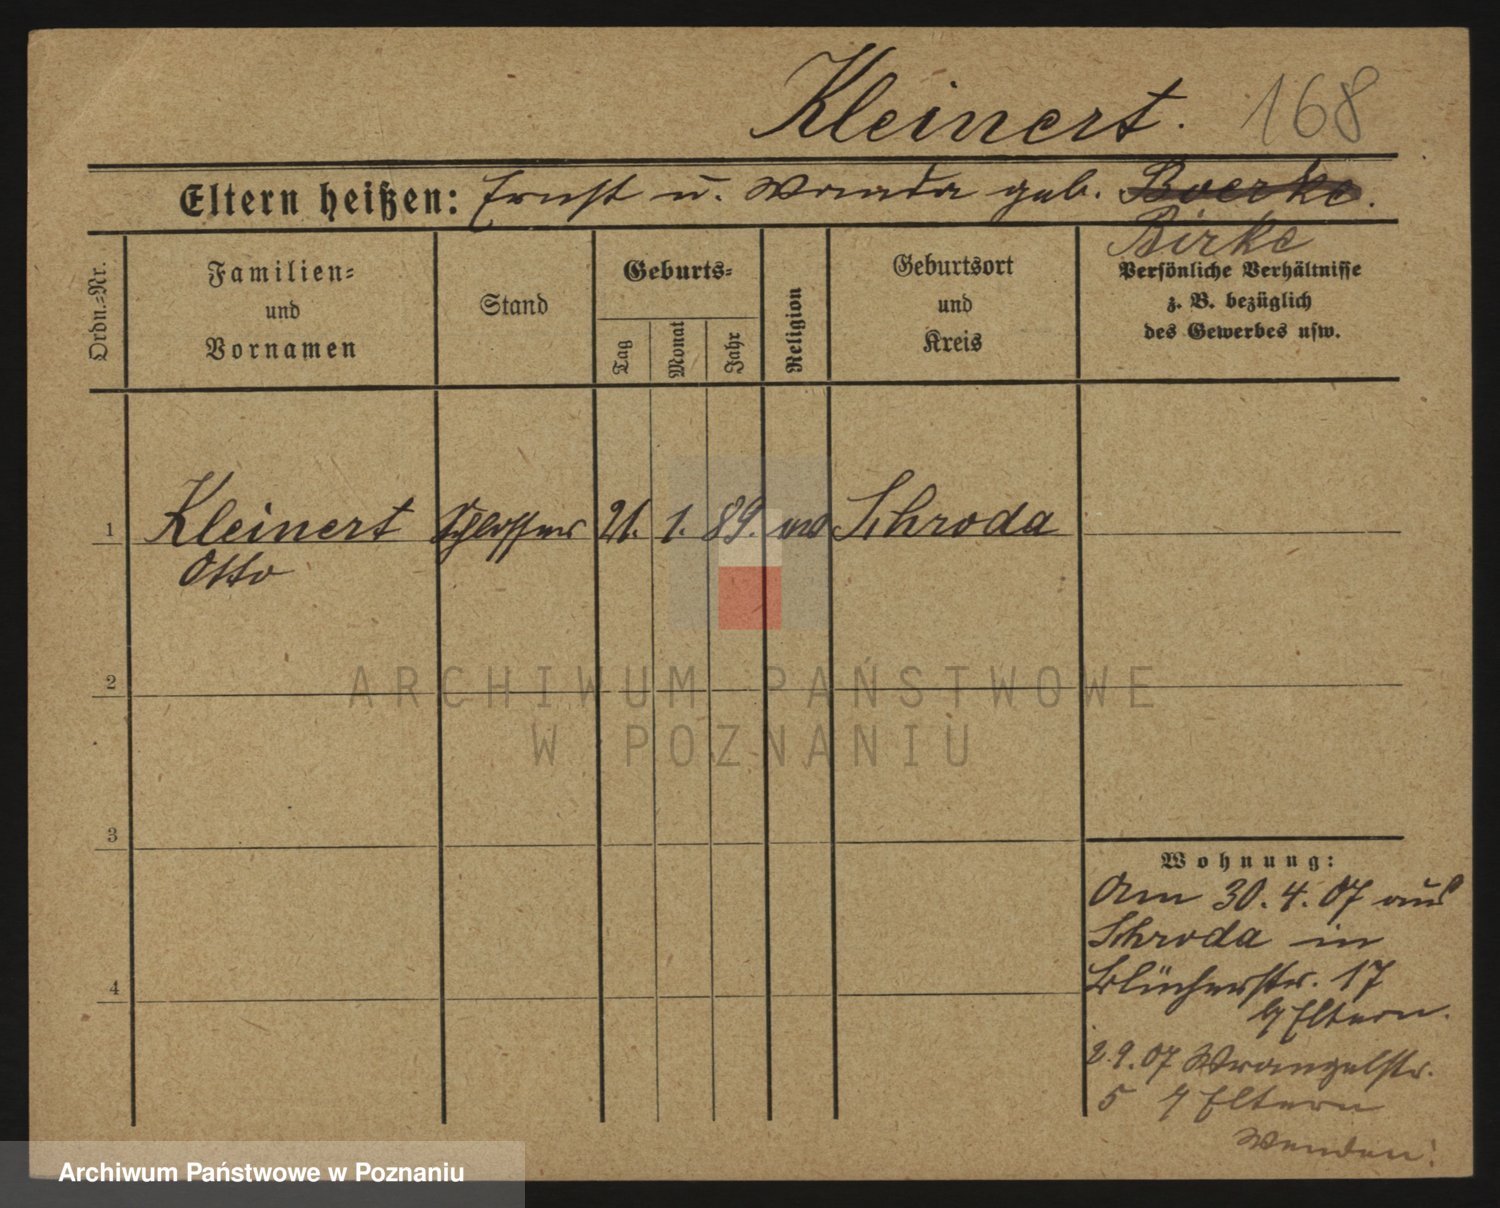 Kleinert. 168
Eltern heißen: Ernst u. Wanda geb. Boerke.
Birke
Ordn.=Nr.
Familien=
und
Vornamen
Stand
Geburts=
Tag
Monat
Jahr
Religion
Geburtsort
und
Kreis
Persönliche Verhältnisse
z. B. bezüglich
des Gewerbes usw.
1 Kleinert Schlosser 21. 1. 89. Schroda
Otto
2
3
4
Wohnung:
Am 30.4.07 aus
Schroda in
Blücherstr. 17
Eltern.
2.9.07 Wrangelstr.
5 Eltern
Wenden!
ARCHIWUM PAŃSTWOWE
W POZNANIU
Archiwum Państwowe w Poznaniu